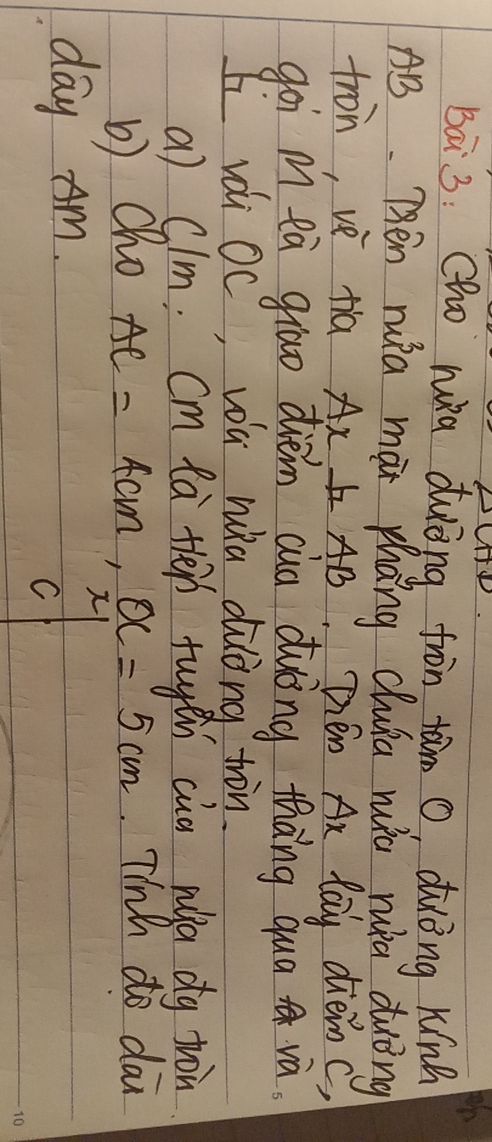 Δ CAB.
Bài 3: Cho nửa đường tròn tâm O, đường kính
AB. Trên nửa mặt phẳng chứa nửa nửa đường
tròn, vẽ tia Ax ⊥ AB. Trên Ax lấy điểm C,
gọi M là giao điểm của đường thẳng qua A và
⊥ với OC, với nửa đường tròn.
a) C/m: CM là tiếp tuyến của nửa đg tròn.
b) Cho AC = 4cm, OC = 5cm. Tính độ dài
dây AM.
x
C
5
10